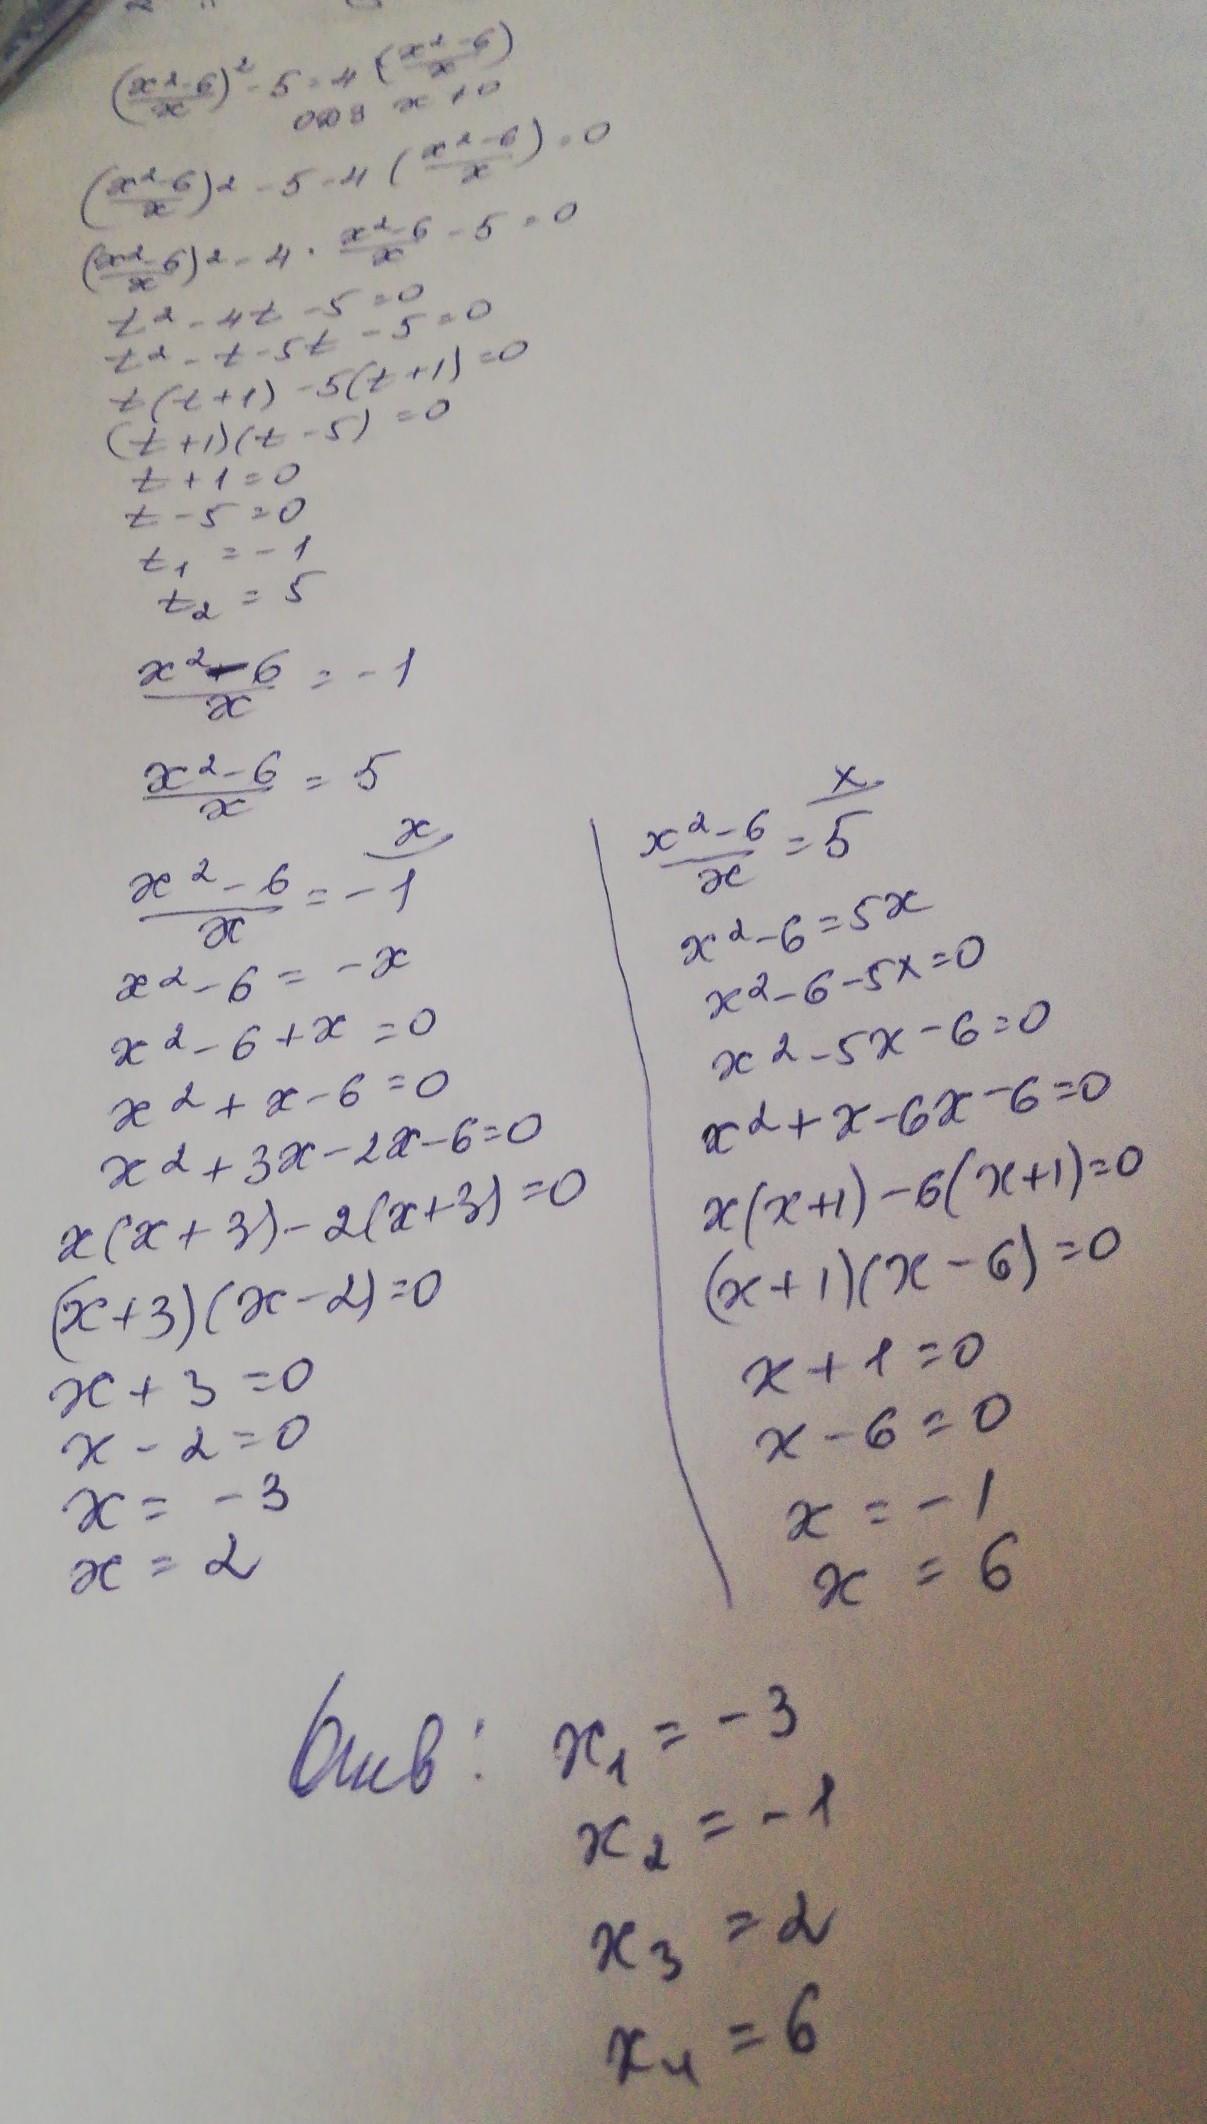 (x²-6/x)² - 5 = 4 (x²-6/x)
x ≠ 0
(x²-6/x)² - 5 - 4 (x²-6/x) = 0
(x²-6/x)² - 4 · x²-6/x - 5 = 0
t² - 4t - 5 = 0
t² - t - 5t - 5 = 0
t(t+1) - 5(t+1) = 0
(t+1)(t-5) = 0
t + 1 = 0
t - 5 = 0
t₁ = -1
t₂ = 5
x²-6/x = -1
x²-6/x = 5
x
x²-6/x = -1
x²-6 = -x
x²-6+x = 0
x²+x-6 = 0
x²+3x-2x-6=0
x(x+3)-2(x+3)=0
(x+3)(x-2)=0
x+3=0
x-2=0
x = -3
x = 2
x
x²-6/x = 5
x²-6=5x
x²-6-5x=0
x²-5x-6=0
x²+x-6x-6=0
x(x+1)-6(x+1)=0
(x+1)(x-6)=0
x+1=0
x-6=0
x = -1
x = 6
x₁ = -3
x₂ = -1
x₃ = 2
x₄ = 6